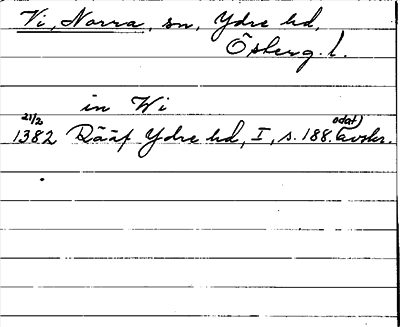 Vi, Norra, sn, Ydre hd,
Östergg. l.
in Wi
21/2 odat)
1382 Rääf Ydre hd, I, s. 188. (avskr.